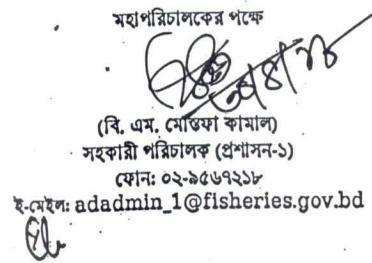 মহাপরিচালকের পক্ষে
(বি. এম. মোস্তফা কামাল)
সহকারী পরিচালক (প্রশাসন-১)
ফোন: ০২-৯৫৬৭২১৮
ই-মেইল: adadmin_1@fisheries.gov.bd